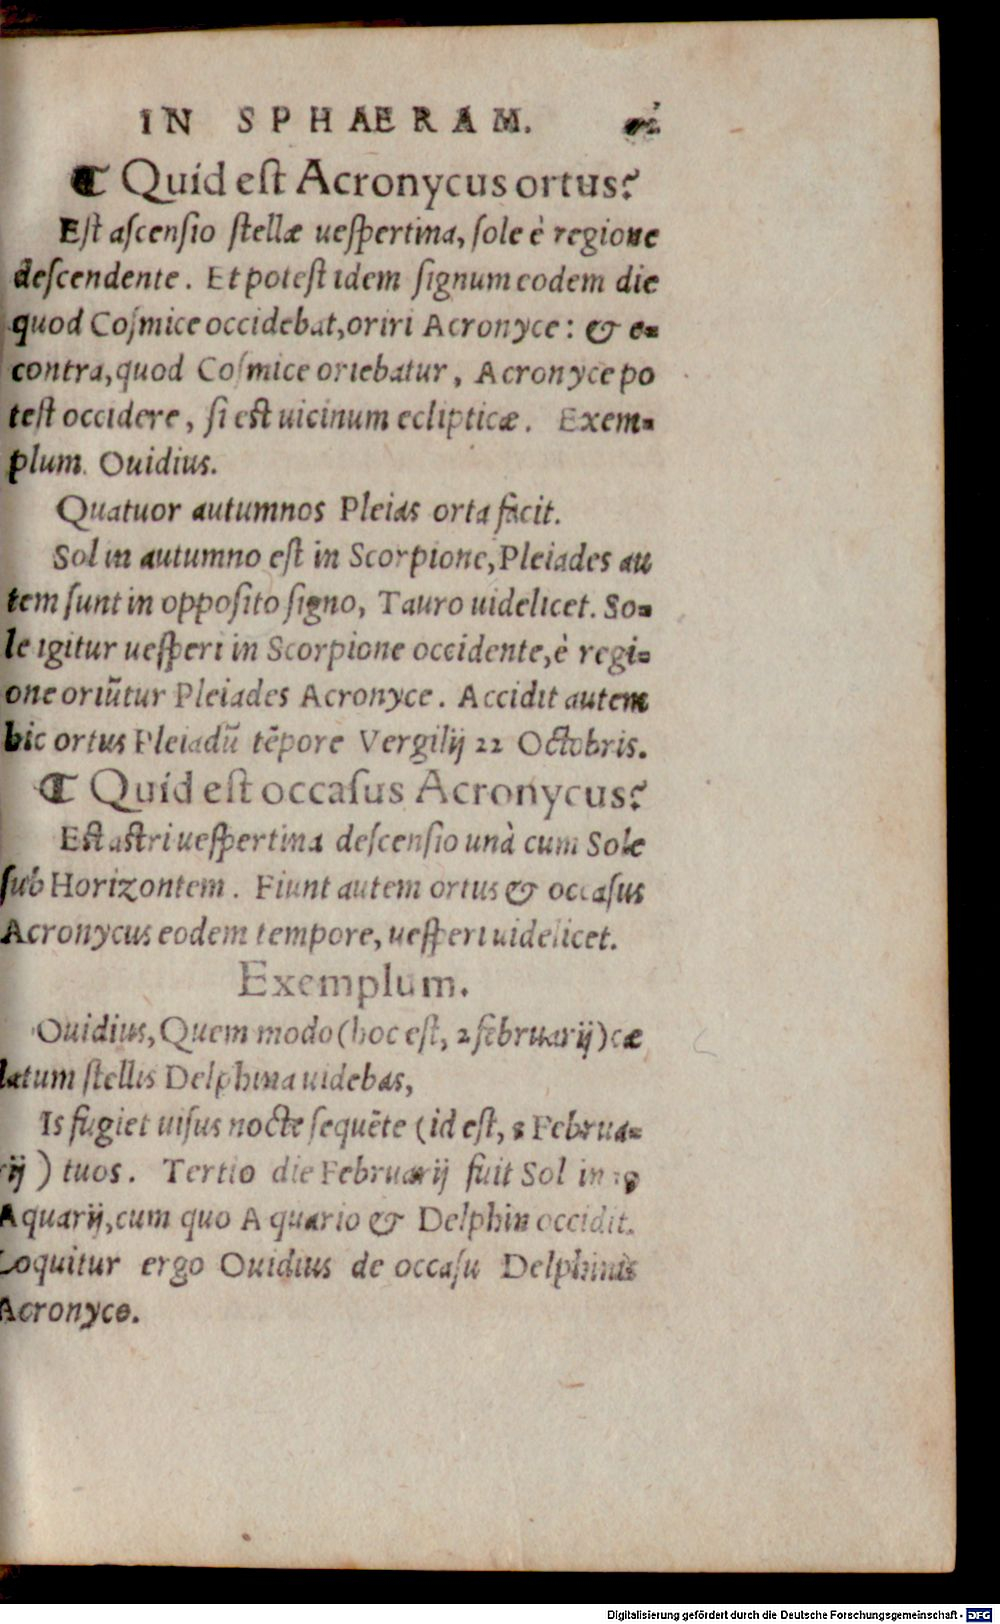 IN SPHAERAM.
¶ Quid est Acronycus ortus?
Est ascensio stellæ uespertina, sole è regione
descendente. Et potest idem signum eodem die
quod Cosmice occidebat, oriri Acronyce: & e-
contra, quod Cosmice oriebatur, Acronyce po
test occidere, si est uicinum eclipticæ. Exem-
plum. Ouidius.
Quatuor autumnos Pleias orta facit.
Sol in autumno est in Scorpione, Pleiades au
tem sunt in opposito signo, Tauro uidelicet. So-
le igitur uesperi in Scorpione occidente, è regi-
one oriũtur Pleiades Acronyce. Accidit autem
hic ortus Pleiadũ tẽpore Vergilij 22 Octobris.
¶ Quid est occasus Acronycus?
Est astri uespertina descensio unà cum Sole
sub Horizontem. Fiunt autem ortus & occasus
Acronycus eodem tempore, uesperi uidelicet.
Exemplum.
Ouidius, Quem modo (hoc est, 2 februarij) cæ
latum stellis Delphina uidebas,
Is fugiet uisus nocte sequẽte (id est, 3 Februa-
rij) tuos. Tertio die Februarij fuit Sol in
Aquarij, cum quo Aquario & Delphin occidit.
Loquitur ergo Ouidius de occasu Delphinis
Acronyco.
Digitalisierung gefördert durch die Deutsche Forschungsgemeinschaft - DFG